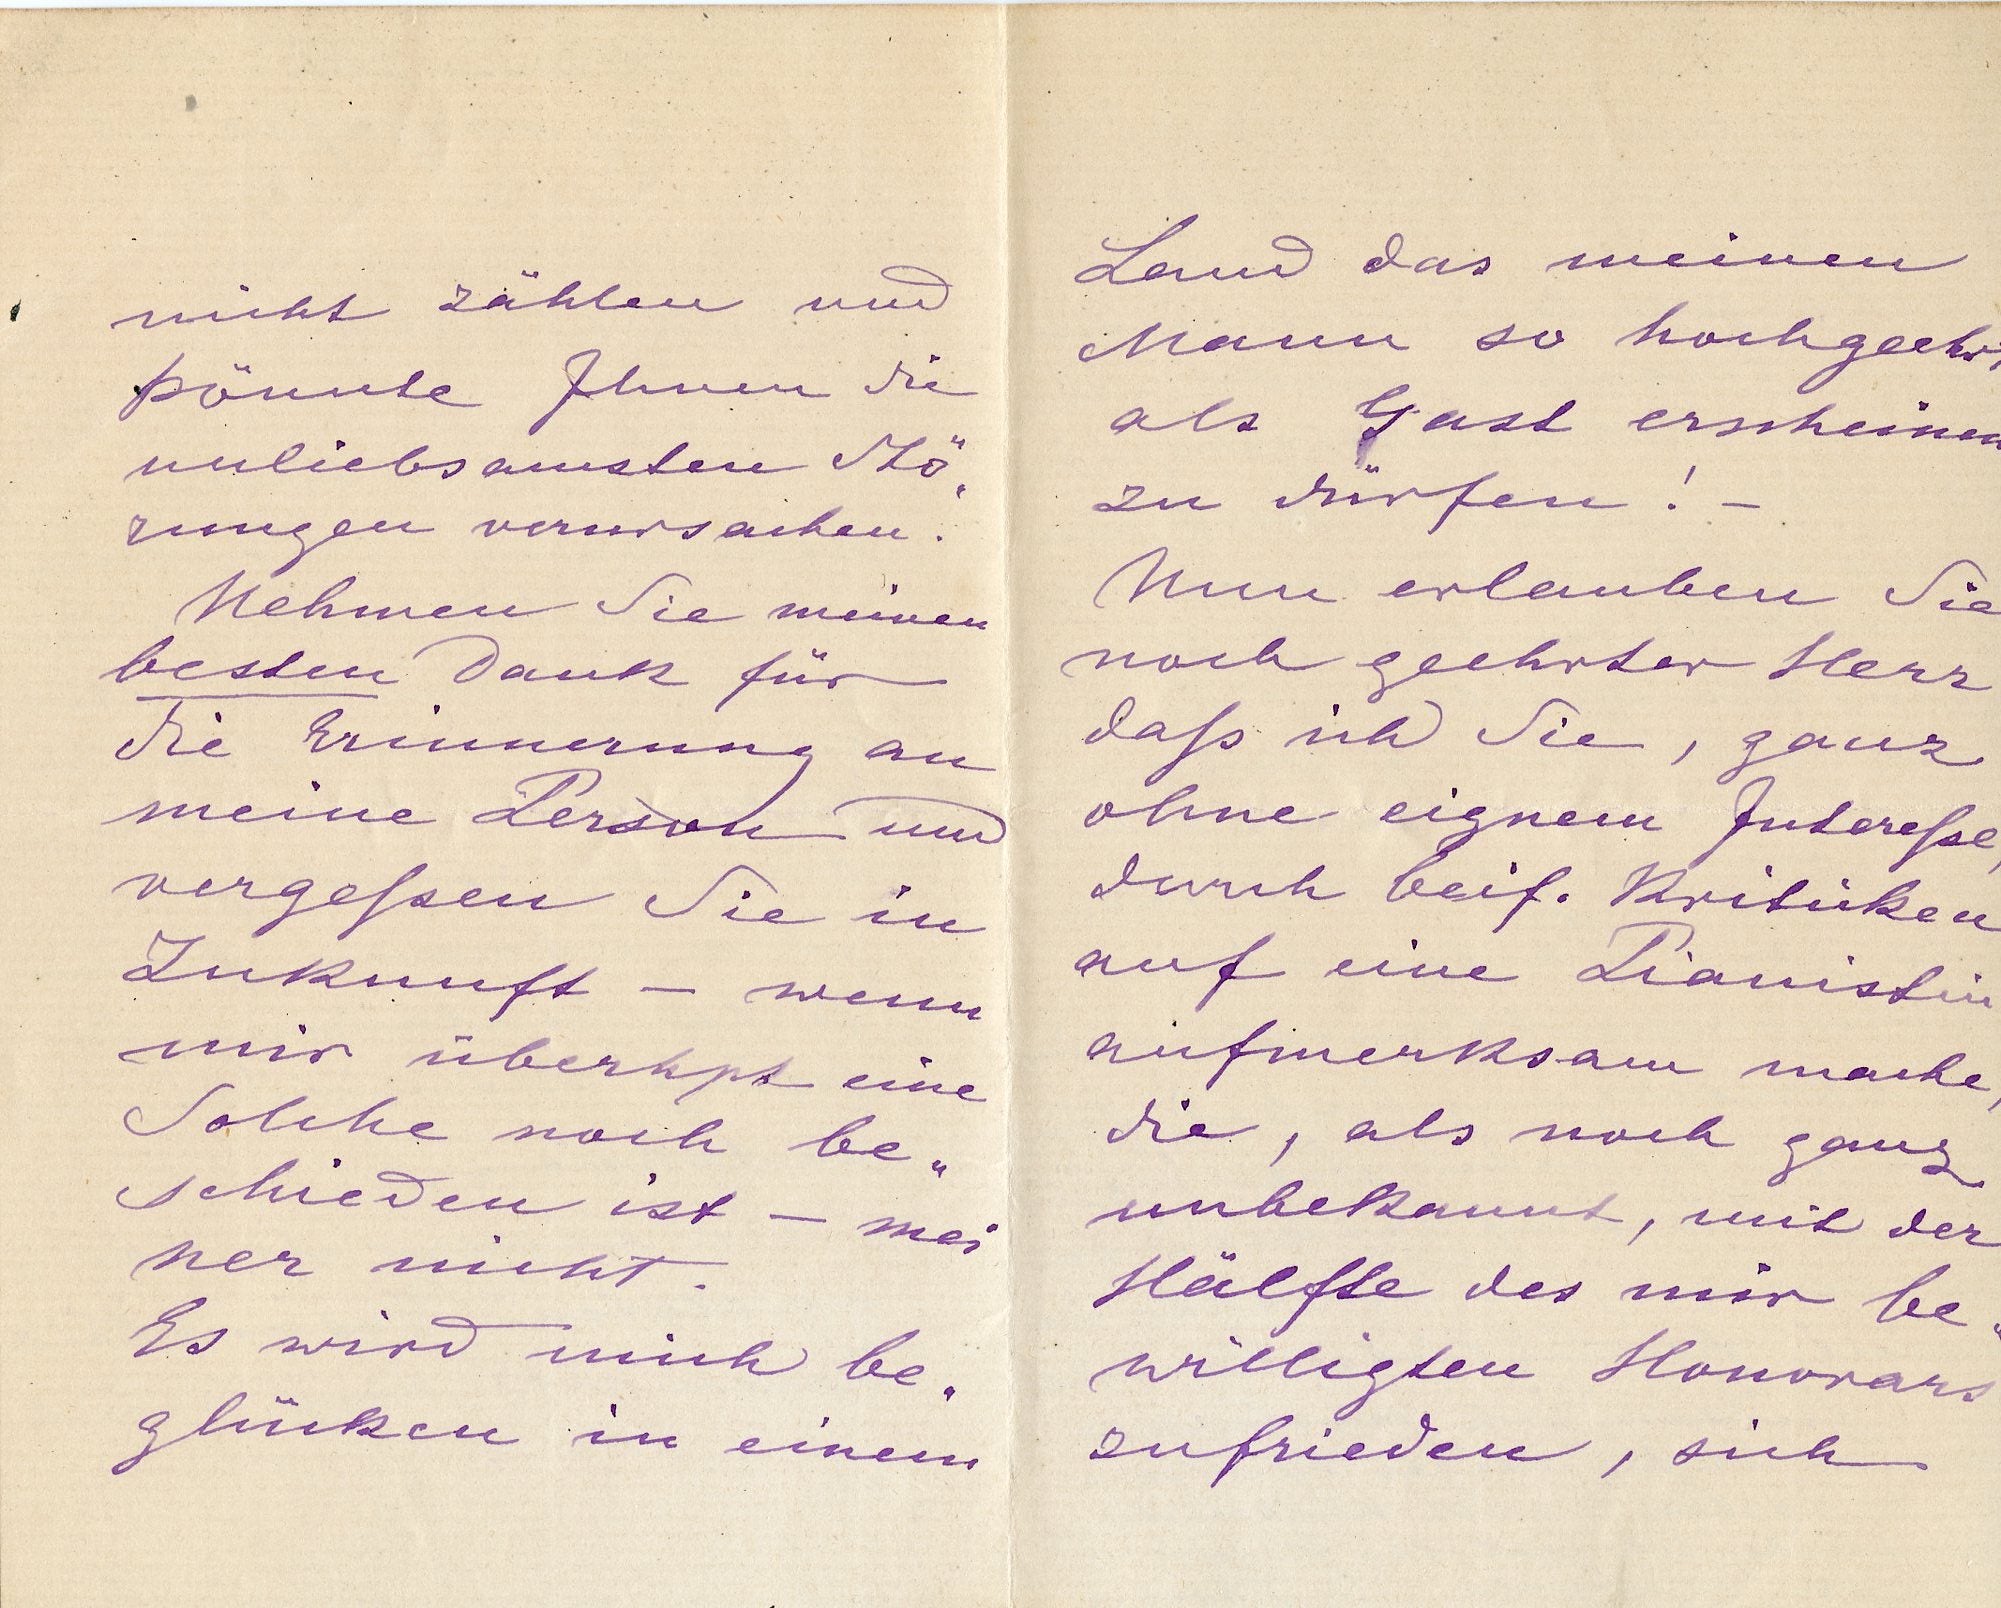 nicht zählen und
könnte Ihnen die
unliebsamsten Stö„
rungen verursachen.
Nehmen Sie meinen
besten Dank für
die Erinnerung an
meine Person und
vergeſsen Sie in
Zukunft – wenn
mir überhpt eine
Solche noch be„
schieden ist – mei
ner nicht.
Es wird mich be„
glücken in einem
Land das meinen
Mann so hochgeehrt,
als Gast erscheinen
zu dürfen! –
Nun erlauben Sie
noch geehrter Herr
daſs ich Sie, ganz
ohne eignem Intereſse,
durch beif. Kritiken
auf eine Pianistin
aufmerksam mache,
die, als noch ganz
unbekannt, mit der
Hälfte des mir be„
willigten Honorars
zufrieden, sich